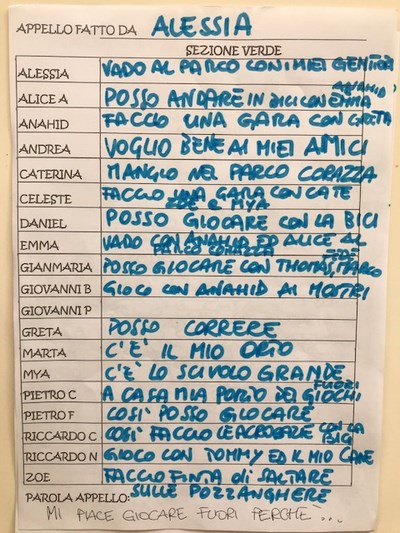 APPELLO FATTO DA ALESSIA
SEZIONE VERDE
ALESSIA VADO AL PARCO CON I MIEI GENITORI
ALICE A POSSO ANDARE IN BICI CON EMMA ANAHID
ANAHID FACCIO UNA GARA CON GRETA
ANDREA VOGLIO BENE AI MIEI AMICI
CATERINA MANGIO NEL PARCO CORAZZA
CELESTE FACCIO UNA GARA CON CATE
ZOE E MYA
DANIEL POSSO GIOCARE CON LA BICI
EMMA VADO CON ANAHID ED ALICE AL
PARCO CORAZZA
GIANMARIA POSSO GIOCARE CON THOMAS, MARCO
GIOVANNI B GIOCO CON ANAHID AI MOSTRI
GIOVANNI P
GRETA POSSO CORRERE
MARTA C'E' IL MIO ORTO
MYA C'E' LO SCIVOLO GRANDE
PIETRO C A CASA MIA PORTO DEI GIOCHI FUORI
PIETRO F COSI' POSSO GIOCARE
RICCARDO C COSI' FACCIO LE ACROBAZIE CON LA BICI
RICCARDO N GIOCO CON TOMMY ED IL MIO CANE
ZOE FACCIO FINTA DI SALTARE
SULLE POZZANGHERE
PAROLA APPELLO:
MI PIACE GIOCARE FUORI PERCHÈ...